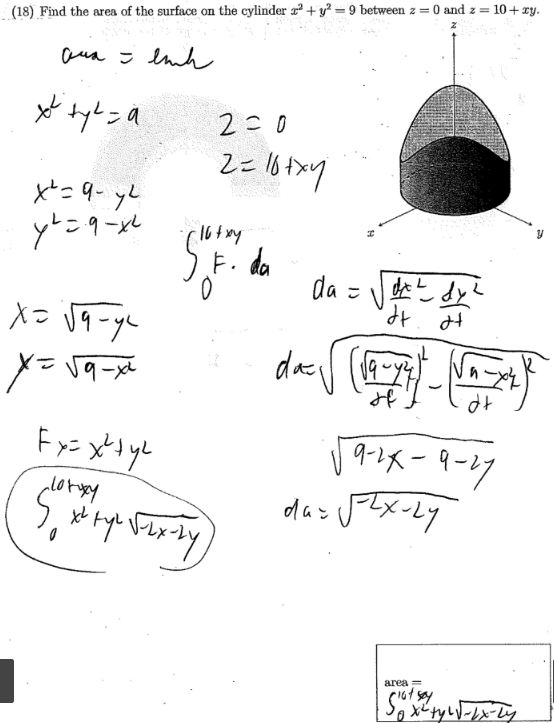 (18) Find the area of the surface on the cylinder x² + y² = 9 between z = 0 and z = 10 + xy.
z
x² + y² = 9
z = 0
z = 10 + xy
x² = 9 - y²
y² = 9 - x²
∫₀^(10+xy) F · da
x
y
da = √(dx²/dt - dy²/dt)
x = √(9 - y²)
y = √(9 - x²)
da = √((√(9 - y²)/dt)² - (√(9 - x²)/dt)²)
F = x² + y²
√(9 - 2x - 9 - 2y)
∫₀^(10+xy) x² + y² √(-2x - 2y)
da = √(-2x - 2y)
area =
∫₀^(10+xy) x² + y² √(-2x - 2y)